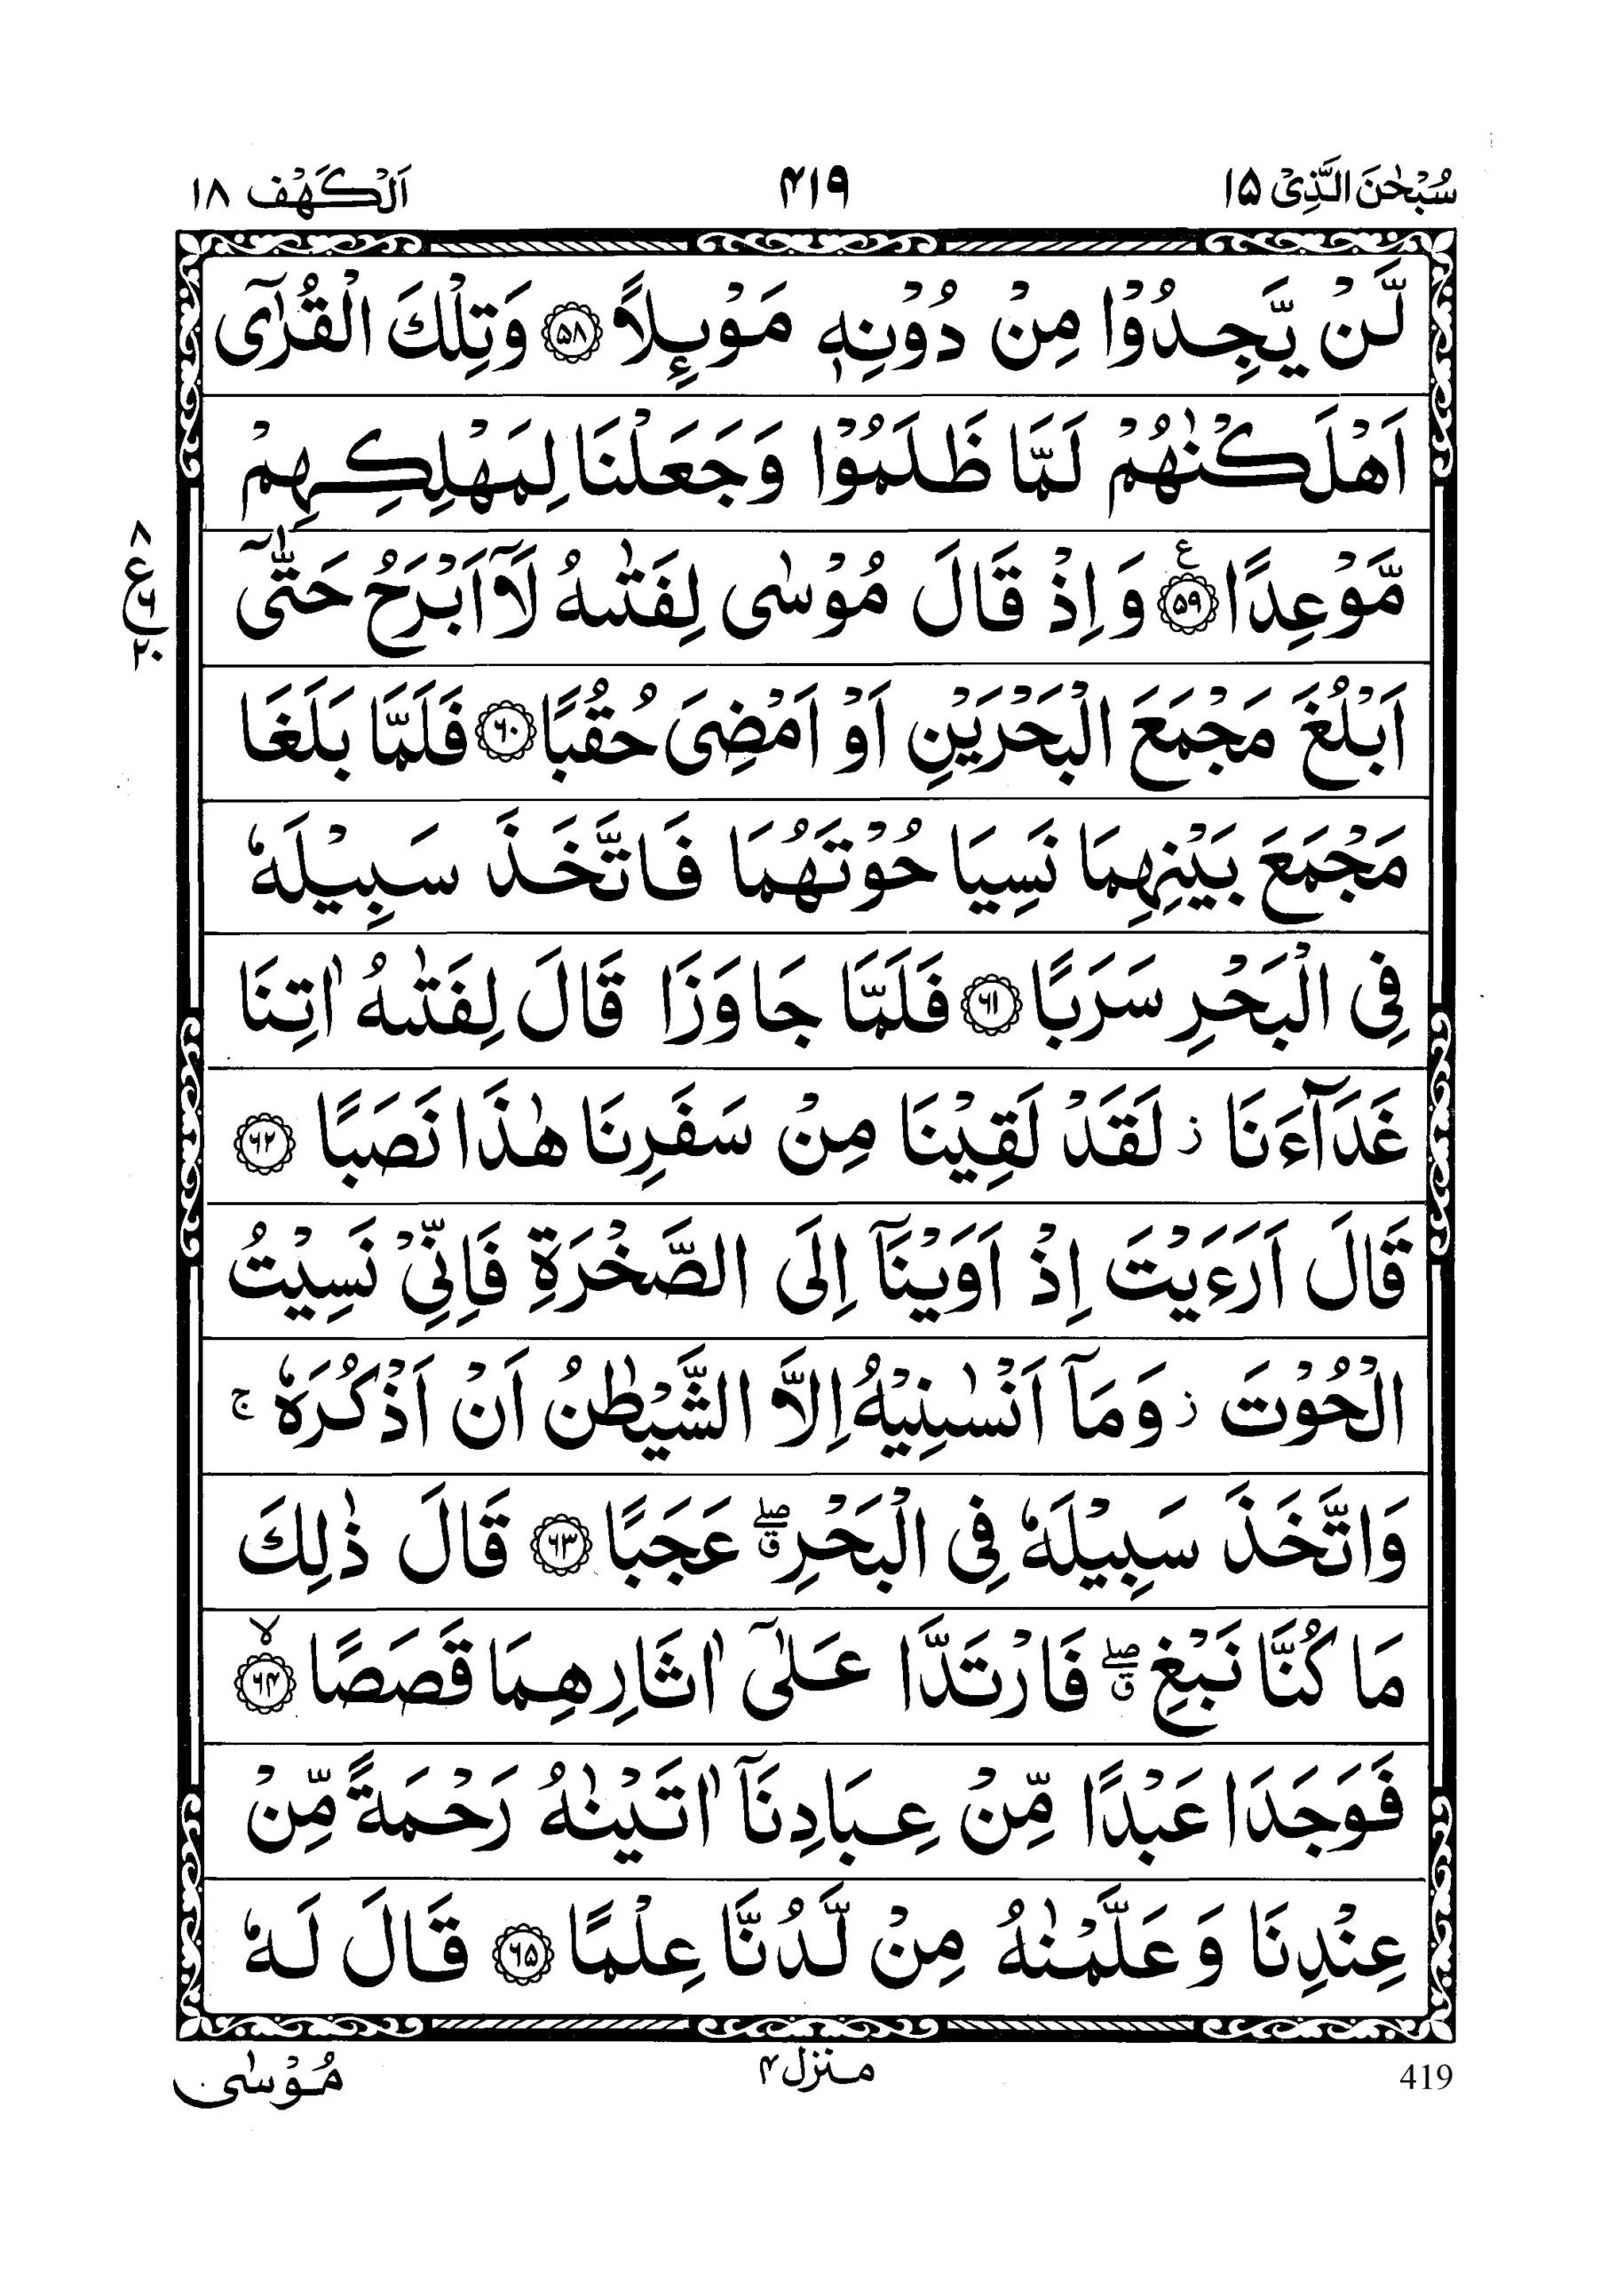 سُبْحٰنَ الَّذِیْ ۱۵ ۴۱۹ اَلْكَهْف ۱۸
لَّنْ یَّجِدُوْا مِنْ دُوْنِهٖ مَوْىِٕلًا ﴿۵۸﴾ وَتِلْكَ الْقُرٰۤى
اَهْلَكْنٰهُمْ لَمَّا ظَلَمُوْا وَجَعَلْنَا لِمَهْلِكِهِمْ
مَّوْعِدًا ﴿۵۹﴾ ع وَاِذْ قَالَ مُوْسٰى لِفَتٰىهُ لَاۤ اَبْرَحُ حَتّٰۤى
۸ ع ۶ ۲۰
اَبْلُغَ مَجْمَعَ الْبَحْرَیْنِ اَوْ اَمْضِیَ حُقُبًا ﴿۶۰﴾ فَلَمَّا بَلَغَا
مَجْمَعَ بَیْنِهِمَا نَسِیَا حُوْتَهُمَا فَاتَّخَذَ سَبِیْلَهٗ
فِی الْبَحْرِ سَرَبًا ﴿۶۱﴾ فَلَمَّا جَاوَزَا قَالَ لِفَتٰىهُ اٰتِنَا
غَدَآءَنَا ز لَقَدْ لَقِیْنَا مِنْ سَفَرِنَا هٰذَا نَصَبًا ﴿۶۲﴾
قَالَ اَرَءَیْتَ اِذْ اَوَیْنَاۤ اِلَى الصَّخْرَةِ فَاِنِّیْ نَسِیْتُ
الْحُوْتَ ز وَمَاۤ اَنْسٰىنِیْهُ اِلَّا الشَّیْطٰنُ اَنْ اَذْكُرَهٗ ج
وَاتَّخَذَ سَبِیْلَهٗ فِی الْبَحْرِ ۖق عَجَبًا ﴿۶۳﴾ قَالَ ذٰلِكَ
مَا كُنَّا نَبْغِ ۖق فَارْتَدَّا عَلٰۤى اٰثَارِهِمَا قَصَصًا ﴿۶۴﴾ لا
فَوَجَدَا عَبْدًا مِّنْ عِبَادِنَاۤ اٰتَیْنٰهُ رَحْمَةً مِّنْ
عِنْدِنَا وَعَلَّمْنٰهُ مِنْ لَّدُنَّا عِلْمًا ﴿۶۵﴾ قَالَ لَهٗ
419 منزل ۴ مُوْسٰى